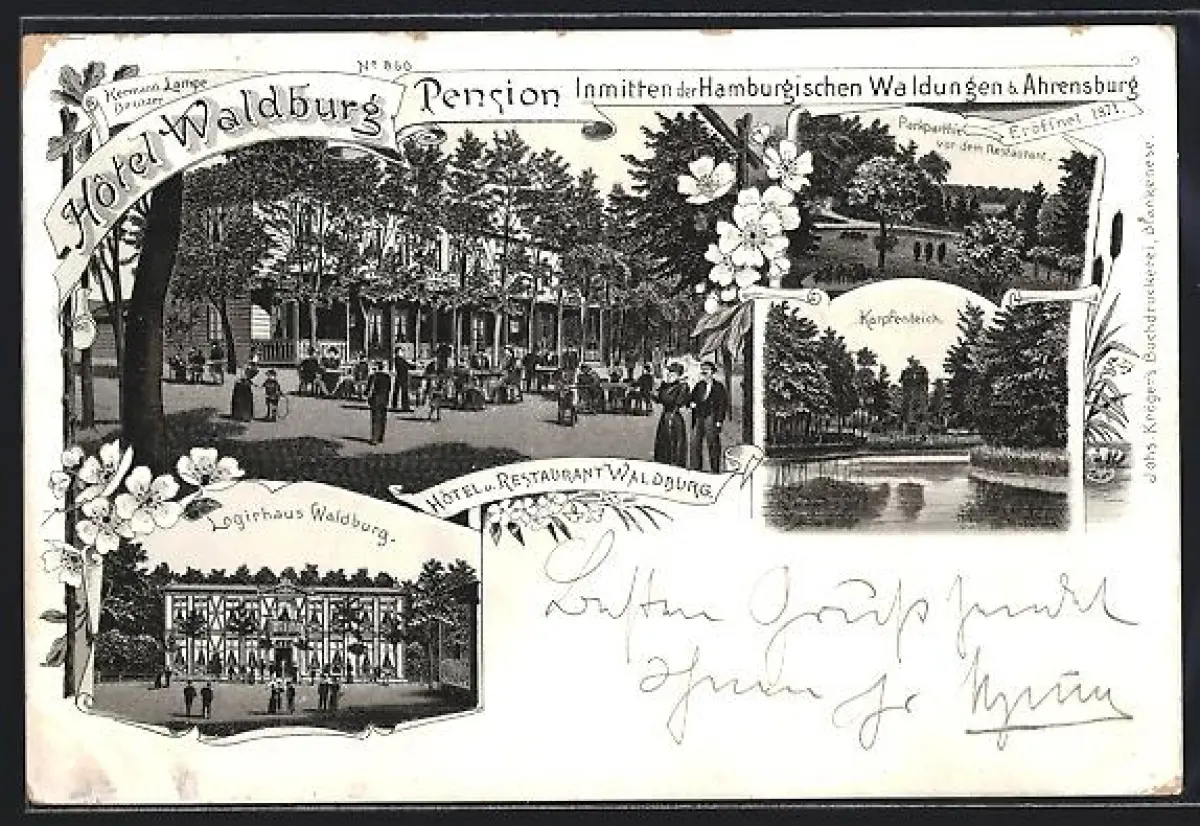 No 860
Hermann Lampe
Besitzer
Hôtel Waldburg
Pension
Inmitten der Hamburgischen Waldungen b. Ahrensburg
Eröffnet 1871.
Parkparthie
vor dem Restaurant.
Karpfenteich.
HÔTEL u. RESTAURANT WALDBURG.
Logirhaus Waldburg.
Johs. Krögers Buchdruckerei, Blankenese.
Besten Gruß sendet
Ihnen Ihr